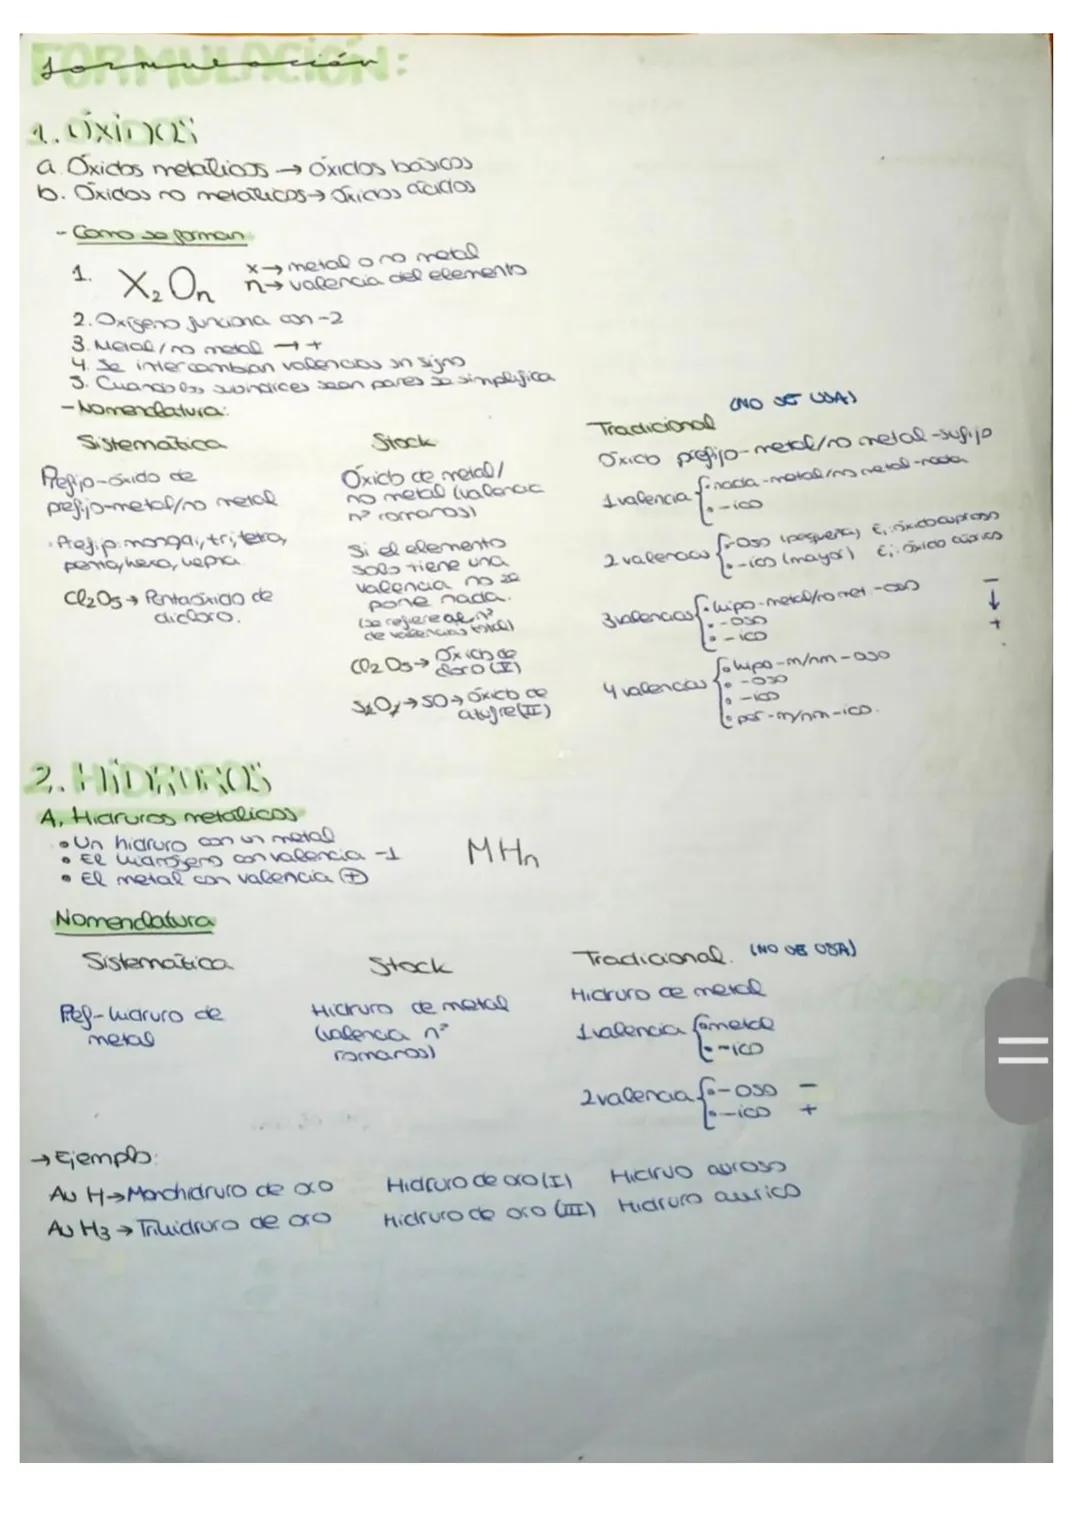 FORMULACIÓN:
formulación
1. ÓXIDOS
a. Óxidos metálicos → óxidos básicos
b. Óxidos no metálicos → óxidos ácidos
- Como se forman
1. X₂On
x → metal o no metal
n → valencia del elemento
2. Oxígeno funciona con -2
3. Metal / no metal → +
4. Se intercambian valencias sin signo
5. Cuando los subíndices sean pares se simplifica
- Nomenclatura:
Sistemática
Prefijo-óxido de
prefijo-metal/no metal
Prefijo: mono, di, tri, tetra,
penta, hexa, hepta
Cl₂O₅ → Pentaóxido de
dicloro.
Stock
Óxido de metal/
no metal (valencia
nº romanos)
Si el elemento
solo tiene una
valencia no se
pone nada.
(se refiere al nº
de valencias total)
Cl₂O₅ → Óxido de
cloro (V)
S₂O₂ → SO → óxido de
azufre (II)
Tradicional (NO SE USA)
Óxido prefijo-metal/no metal-sufijo
1 valencia {· nada-metal/no metal-nada
· -ico
2 valencias {· -oso (pequeña) Ej: óxido cuproso
· -ico (mayor) Ej: óxido cúprico
3 valencias {· hipo-metal/no met.-oso -
· -oso ↓
· -ico +
4 valencias {· hipo-m/nm-oso
· -oso
· -ico
· per-m/nm-ico.
2. HIDRUROS
A. Hidruros metálicos
• Un hidruro con un metal
• El hidrógeno con valencia -1
• El metal con valencia ⊕
MHn
Nomenclatura
Sistemática
Pref-hidruro de
metal
Stock
Hidruro de metal
(valencia nº
romanos)
Tradicional. (NO SE USA)
Hidruro de metal
1 valencia {· metal
· -ico
2 valencia {· -oso -
· -ico +
→ Ejemplo:
Au H → Monohidruro de oro Hidruro de oro (I) Hidruo auroso
Au H₃ → Trihidruro de oro Hidruro de oro (III) Hidruro aurico